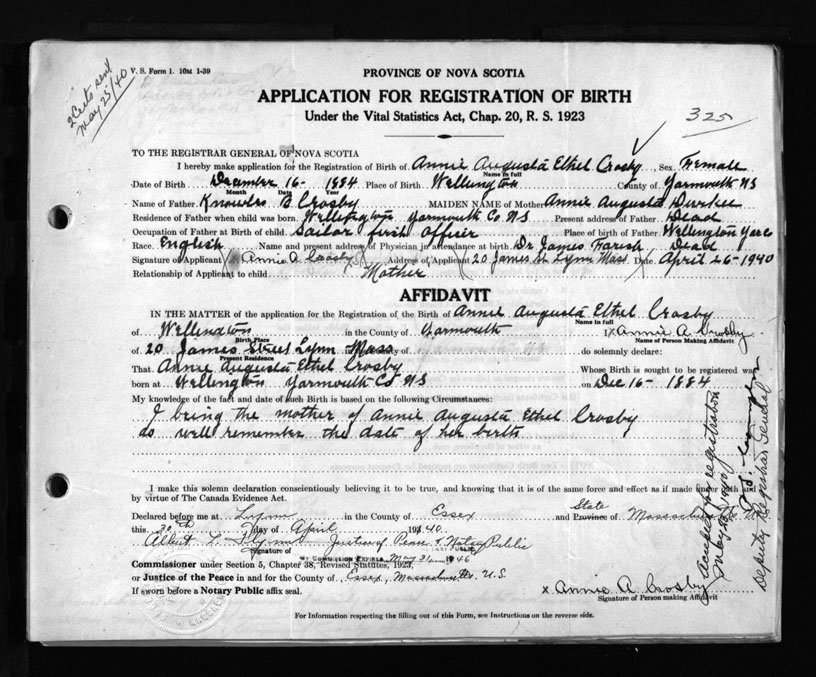 V. S. Form 1. 10M 1-39
2 Certs sent
May 25/40
PROVINCE OF NOVA SCOTIA
APPLICATION FOR REGISTRATION OF BIRTH
Under the Vital Statistics Act, Chap. 20, R. S. 1923
325
TO THE REGISTRAR GENERAL OF NOVA SCOTIA
I hereby make application for the Registration of Birth of Annie Augusta Ethel Crosby, Sex Female
Name in full
Date of Birth December 16 - 1884 Place of Birth Wellington County of Yarmouth NS
Month Date Year
Name of Father Knowles B Crosby MAIDEN NAME of Mother Annie Augusta Durkee
Residence of Father when child was born. Wellington Yarmouth Co NS Present address of Father Dead
Occupation of Father at Birth of child. Sailor first Officer Place of birth of Father Wellington Yar Co
Race. English Name and present address of Physician in attendance at birth Dr James Farish Dead
Signature of Applicant x Annie A Crosby Address of Applicant 20 James St Lynn Mass. Date April 26 - 1940
Relationship of Applicant to child Mother
AFFIDAVIT
IN THE MATTER of the application for the Registration of the Birth of Annie Augusta Ethel Crosby
Name in full
of Wellington in the County of Yarmouth I x Annie A Crosby
Birth Place Name of Person Making Affidavit
of 20 James Street Lynn Mass of do solemnly declare:
Present Residence
That Annie Augusta Ethel Crosby Whose Birth is sought to be registered was
born at Wellington Yarmouth Co NS on Dec 16 - 1884
My knowledge of the fact and date of such Birth is based on the following Circumstances:
I being the mother of Annie Augusta Ethel Crosby
do well remember the date of her birth
I make this solemn declaration conscientiously believing it to be true, and knowing that it is of the same force and effect as if made under oath and
by virtue of The Canada Evidence Act.
Declared before me at Lynn in the County of Essex and State Province of Massachusetts
this 30th day of April 1940
Albert L. Justice of Peace & Notary Public
Signature of
MY COMMISSION EXPIRES May 1946
Commissioner under Section 5, Chapter 38, Revised Statutes, 1923,
or Justice of the Peace in and for the County of Essex, Massachusetts. U.S.
If sworn before a Notary Public affix seal.
x Annie A Crosby
Signature of Person making Affidavit
For Information respecting the filling out of this Form, see Instructions on the reverse side.
Accepted for registration
May 1940
Deputy Registrar General